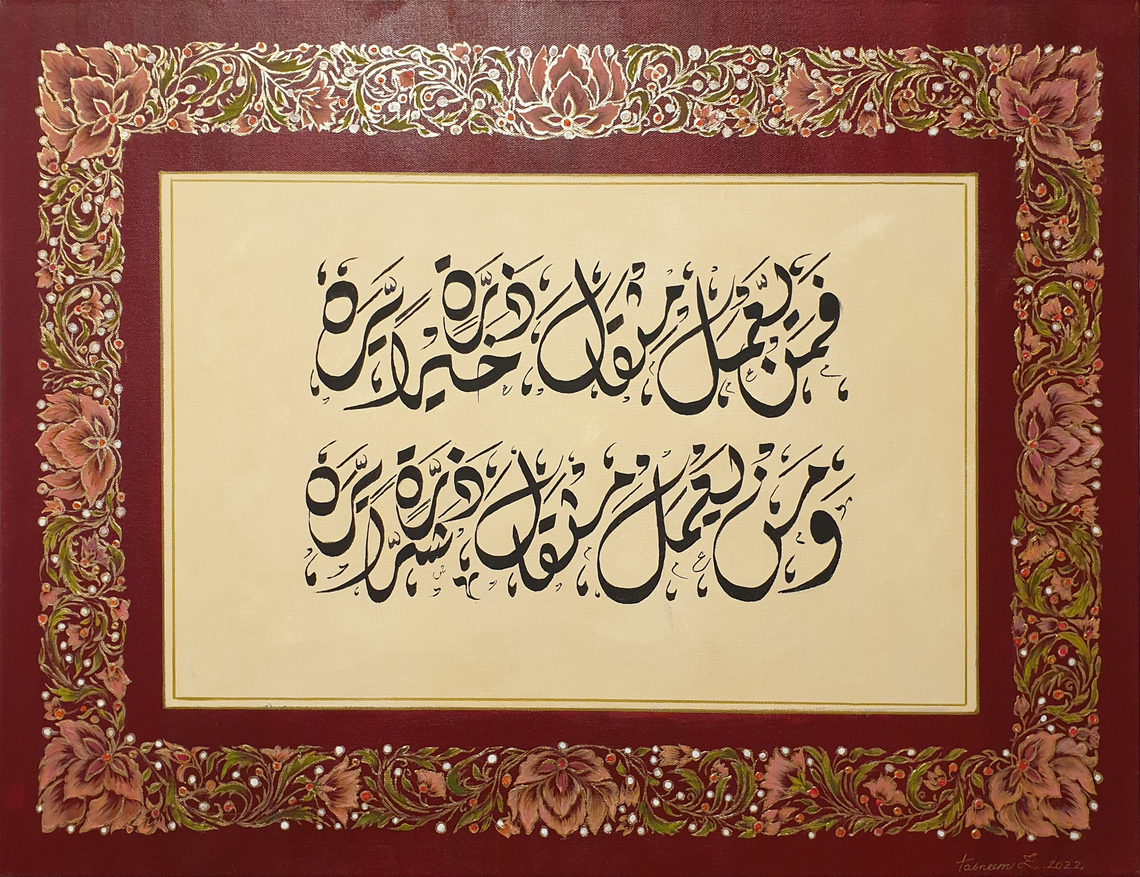 فَمَنْ يَّعْمَلْ مِثْقَالَ ذَرَّةٍ خَيْرًا يَّرَهٗ
وَمَنْ يَّعْمَلْ مِثْقَالَ ذَرَّةٍ شَرًّا يَّرَهٗ
Tasneem Z. 2022